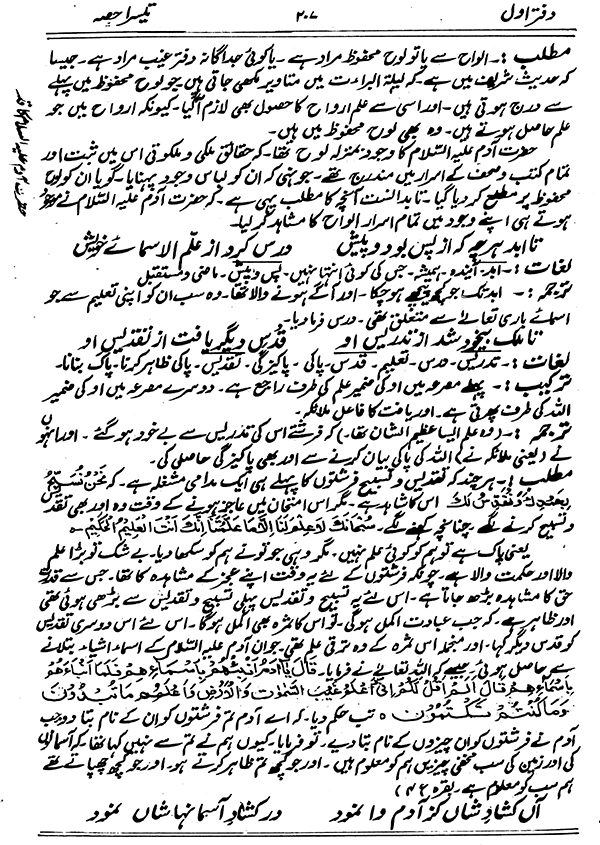 دفتر اول ۲۰۷ تیسرا حصہ
مطلب :۔ الواح سے یا تو لوح محفوظ مراد ہے ۔ یا کوئی جداگانہ دفتر غیب مراد ہے ۔ جیسا
کہ حدیث شریف میں ہے۔ کہ لیلۃ البراءت میں مقادیر لکھی جاتی ہیں جو لوح محفوظ میں پہلے
سے درج ہوتی ہیں ۔ اور اسی سے علم ارواح کا حصول بھی لازم آگیا۔ کیونکہ ارواح میں جو
علم حاصل ہوتے ہیں ۔ وہ بھی لوح محفوظ میں ہیں۔
حضرت آدم علیہ السّلام کا وجود بمنزلہ لوح تھا۔ کہ حقائق ملکی و ملکوتی اس میں ثبت اور
تمام کتب و صحف کے اسرار میں مندرج تھے۔ جونہی کہ ان کو لباس وجود پہنایا۔ گویا ان کو لوح
محفوظ پر مطلع کر دیا گیا۔ تا بد الست آنچہ کا مطلب یہی ہے۔ کہ حضرت آدم علیہ السّلام نے موجود
ہوتے ہی اپنے وجود میں تمام اسرار الواح کا مشاہدہ کر لیا۔
تا ابد ہر چہ کہ از پس بود و پیش درس کرد از علّم الاسمائے خویش
لغات :۔ ابد۔ آئندہ۔ ہمیشہ۔ جس کی کوئی انتہا نہیں۔ پس و پیش۔ ماضی و مستقبل
ترجمہ :۔ ابد تک جو کچھ پیچھے ہو چکا ۔ اور آگے ہونے والا تھا۔ وہ سب ان کو اپنی تعلیم سے جو
اسمائے باری تعالےٰ سے متعلق تھی۔ درس فرما دیا۔
تا ملک بیخود شد از تدریس او قدس دیگر یافت از تقدیس او
لغات :۔ تدریس۔ درس۔ تعلیم۔ قدس۔ پاکی۔ پاکیزگی۔ تقدیس۔ پاکی ظاہر کرنا۔ پاک بتانا۔
ترکیب :۔ پہلے مصرعہ میں او کی ضمیر علم کی طرف راجع ہے۔ دوسرے مصرعہ میں او کی ضمیر
اللہ کی طرف پھرتی ہے۔ اور یافت کا فاعل ملائکہ۔
ترجمہ :۔ (وہ علم ایسا عظیم الشان تھا) کہ فرشتے اس کی تدریس سے بے خود ہو گئے ۔ اور انہوں
نے (یعنی ملائکہ نے) اللہ کی پاکی بیان کرنے سے اور بھی پاکیزگی حاصل کی۔
مطلب :۔ ہر چند کہ تقدیس و تسبیح فرشتوں کا پہلے ہی ایک مدامی مشغلہ ہے۔ کہ نَحْنُ نُسَبِّحُ
بِحَمْدِكَ وَنُقَدِّسُ لَكَ اس کا شاہد ہے۔ مگر اس امتحان میں عاجز ہونے کے وقت وہ اور بھی تقدیس
و تسبیح کرنے لگے۔ چنانچہ کہنے لگے۔ سُبْحَانَكَ لَا عِلْمَ لَنَا إِلَّا مَا عَلَّمْتَنَا إِنَّكَ أَنْتَ الْعَلِيمُ الْحَكِيمُ ۔
یعنی پاک ہے تو ہم کو کوئی علم نہیں۔ مگر وہی جو تو نے ہم کو سکھا دیا۔ بے شک تو بڑا علم
والا اور حکمت والا ہے۔ چونکہ فرشتوں کے لئے یہ وقت اپنے عجز کے مشاہدہ کا تھا۔ جس سے قدرت
حق کا مشاہدہ بڑھ جاتا ہے۔ اس لئے یہ تسبیح و تقدیس پہلی تسبیح و تقدیس سے بڑھی ہوئی تھی
اور ظاہر ہے۔ کہ جب عبادت اکمل ہوگی۔ تو اس کا ثمرہ بھی اکمل ہوگا۔ اس لئے اس دوسری تقدیس
کو قدس دیگر کہا۔ اور منجملہ اس ثمرہ کے وہ ترقی علم تھی۔ جو ان آدم علیہ السّلام کے اسماء اشیاء بتلانے
سے حاصل ہوئی۔ جیسے کہ اللہ تعالےٰ نے فرمایا۔ قَالَ يَا آدَمُ أَنْبِئْهُمْ بِأَسْمَاءِهِمْ فَلَمَّا أَنْبَأَهُمْ
بِأَسْمَاءِهِمْ قَالَ أَلَمْ أَقُلْ لَكُمْ إِنِّي أَعْلَمُ غَيْبَ السَّمٰوٰتِ وَالْأَرْضِ وَأَعْلَمُ مَا تُبْدُوْنَ
وَمَا كُنْتُمْ تَكْتُمُوْنَ ○ تب حکم دیا۔ کہ اے آدم تم فرشتوں کو ان کے نام بتا دو جب
آدم نے فرشتوں کو ان چیزوں کے نام بتا دیے۔ تو فرمایا۔ کیوں ہم نے تم سے نہیں کہا تھا۔ کہ آسمانوں
کی اور زمین کی سب مخفی چیزیں ہم کو معلوم ہیں۔ اور جو کچھ تم ظاہر کرتے ہو۔ اور جو کچھ چھپاتے تھے
ہم سب کو معلوم ہے۔ بقرہ (ع ۴)
آں کشاد شاں کز آدم وا نمود در کشاد آسمانہا شاں نمود